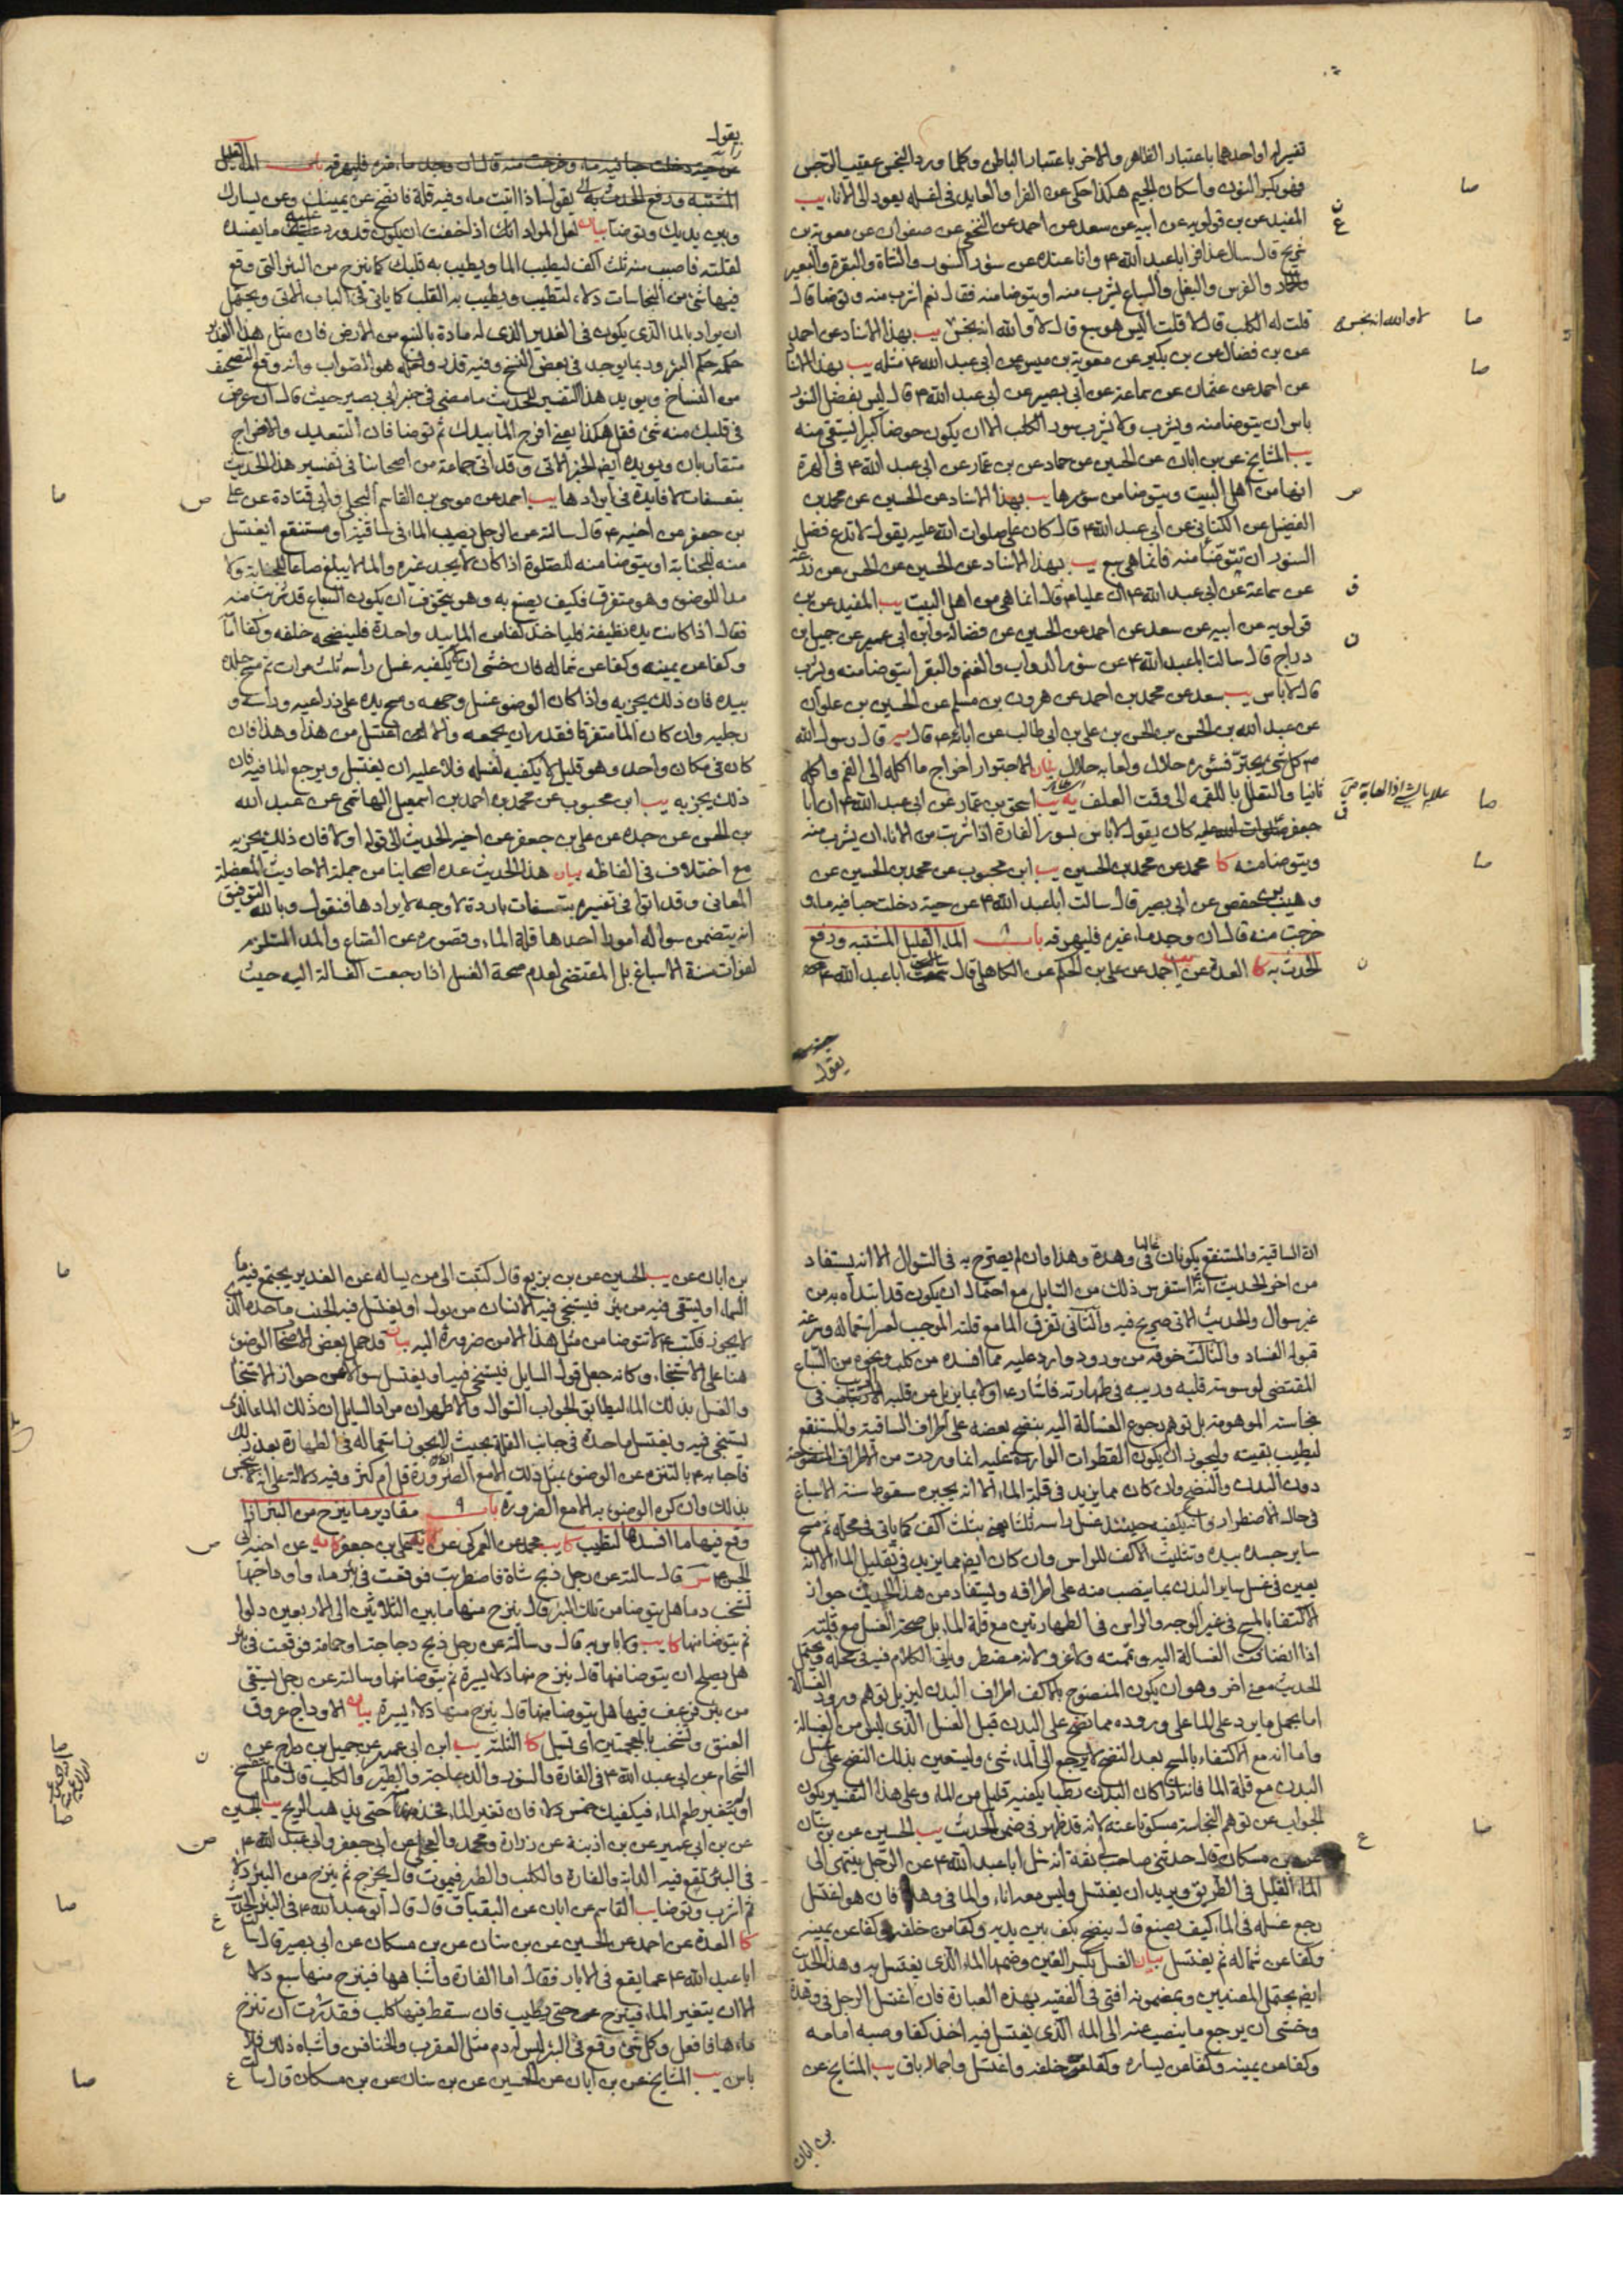 تفسير له او احدهما باعتبار الظاهر والاخر باعتبار الباطن وكلما ورد النجس عقيب الرجس
فهو بكسر النون واسكان الجيم هكذا حكى عن الفراء والعايد فى غسله يعود الى الاناء يب
المفيد عن بن قولويه عن ابيه عن سعد عن احمد عن النخعي عن صفوان عن معوية بن
شريح قال سال عذافر ابا عبد الله ع وانا عنده عن سؤر السنور والشاة والبقرة والبعير
والحمار والفرس والبغل والسباع يشرب منه او يتوضا منه فقال نعم اشرب منه وتوضا قال
قلت له الكلب قال لا قلت اليس هو سبع قال لا والله انه نجس يب بهذا الاسناد عن احمد
لا والله انه نجس
عن بن فضال عن بن بكير عن معوية بن ميسرة عن ابى عبد الله ع مثله يب بهذا الاسنا
عن احمد عن عثمان عن سماعة عن ابى بصير عن ابى عبد الله ع قال ليس بفضل السنور
باس ان يتوضا منه ويشرب ولا يشرب سور الكلب الا ان يكون حوضا كبيرا يستقى منه
يب المشايخ عن بن ابان عن الحسين عن حماد عن بن عمار عن ابى عبد الله ع فى الهرة
انها من اهل البيت ويتوضا من سؤرها يب بهذا الاسناد عن الحسين عن محمد بن
الفضيل عن الكنانى عن ابى عبد الله ع قال كان على صلوات الله عليه يقول لا تدع فضل
السنور ان تتوضأ منه فانما هى سبع يب بهذا الاسناد عن الحسين عن الحسن عن زرعة
عن سماعة عن ابى عبد الله ع ان عليا ع قال انما هى من اهل البيت يب المفيد عن بن
قولويه عن ابيه عن سعد عن احمد عن الحسين عن فضالة وابن ابى عمير عن جميل بن
دراج قال سالت ابا عبد الله ع عن سؤر الدواب والغنم والبقر ايتوضا منه ويشرب
قال لا باس يب سعد عن محمد بن احمد عن هرون بن مسلم عن الحسين بن علوان
عن عبد الله بن الحسن بن الحسن بن على بن ابى طالب عن ابائه ع قال قال رسول الله
ص كل شئ يجتر فسؤره حلال ولعابه حلال بيان الاجترار اخراج ما اكله الى الفم واكله
ثانيا والتعلل باللقمة الى وقت العلف يه يب اسحق بن عمار عن ابى عبد الله ع ان ابا
جعفر صلوات الله عليه كان يقول لا باس بسور الفارة اذا شربت من الاناء ان يشرب منه
ويتوضا منه كا محمد عن محمد بن الحسين يب ابن محبوب عن محمد بن الحسين عن
وهيب بن حفص عن ابى بصير قال سالت ابا عبد الله ع عن حية دخلت حبا فيه ماء و
خرجت منه قال ان وجد ماء غيره فليهرقه باب الماء القليل المشتبه ورفع
الحدث به كا العدة عن احمد عن على بن الحكم عن الكاهلى قال سمعت ابا عبد الله ع
يقول
يقول
المشتبه ورفع الحدث به يقول اذا اتيت ماء وفيه قلة فانضح عن يمينك وعن يسارك
وبين يديك وتوضا بيان لعل المراد انك اذا خفت ان يكون قد ورد عليه ما يفسده
لقلته فاصبب منه ثلث اكف ليطيب الما ويطيب به قلبك كما ينزح من البئر التى وقع
فيها شئ من النجاسات دلاء لتطيب ويطيب به القلب كما ياتى فى الباب الاتى ويحتمل
ان يراد بالماء الذى يكون فى الغدير الذى له مادة بالنبع من الارض فان مثل هذا الغدير
حكمه حكم البئر وربما يوجد فى بعض النسخ وفيه قذر ولعله هو الصواب وانه وقع التصحيف
من النساخ ويؤيد هذا التفسير للحديث ما مضى فى خبر ابى بصير حيث قال ان عرض
فى قلبك منه شئ فقل هكذا يعنى افرج الما بيدك ثم توضا فان التبعيد والافراج
متقاربان ويؤيده ايضا الخبر الاتى وقد اتى جماعة من اصحابنا فى تفسير هذا الحديث
بتعسفات لا فايدة فى ايرادها يب احمد عن موسى بن القاسم البجلى وابى قتادة عن على
بن جعفر عن اخيه ع قال سالته عن الرجل يصيب الماء فى ساقية او مستنقع ايغتسل
منه للجنابة او يتوضا منه للصلوة اذا كان لا يجد غيره والما لا يبلغ صاعا للجنابة ولا
مدا للوضوء وهو متفرق فكيف يصنع به وهو يتخوف ان يكون السباع قد شربت منه
فقال اذا كانت يده نظيفة فلياخذ كفا من الما بيد واحدة فلينضحه خلفه وكفا امامه
وكفا عن يمينه وكفا عن شماله فان خشى ان لا يكفيه غسل راسه ثلث مرات ثم مسح جلده
بيده فان ذلك يجزيه واذا كان الوضوء غسل وجهه ومسح يده على ذراعيه وراسه و
رجليه وان كان الما متفرقا فقدر ان يجمعه والا اغتسل من هذا وهذا فان
كان فى مكان واحد وهو قليل لا يكفيه لغسله فلا عليه ان يغتسل ويرجع الما فيه فان
ذلك يجزيه يب ابن محبوب عن محمد بن احمد بن اسمعيل الهاشمى عن عبد الله
بن الحسن عن جده عن على بن جعفر عن اخيه الحديث الى قوله اولا فان ذلك يجزيه
مع اختلاف فى الفاظه بيان هذا الحديث عده اصحابنا من جملة الاحاديث المعضلة
المعانى وقد اتوا فى تفسيره بتعسفات باردة لا وجه لايرادها فنقول وبالله التوفيق
انه يتضمن سواله امورا احدها قلة الماء وقصوره عن الصاع والمد المستلزم
لفوات سنة الاسباغ بل المقتضى لعدم صحة الغسل اذا رجعت الغسالة اليه حيث
ان الساقية والمستنقع يكونان غالبا فى وهدة وهذا وان لم يصرح به فى السوال الا انه يستفاد
من اخر الحديث انه استفرس ذلك من السايل مع احتمال ان يكون قد ابتداه به من
غير سوال والحديث الاتى صريح فيه والثانى تفرق الما مع قلته الموجب لعسر استعماله وسرعة
قبوله الفساد والثالث خوفه من ورود وارد عليه مما افسده من كلب ونحوه من السباع
المقتضى لوسوسة قلبه وريبه فى طهارته فاشار ع اولا بما يزيل عن قلبه الارتياب فى
نجاسته الموهومة بل توهم رجوع الغسالة اليه بنضح بعضه على اطراف الساقية والمستنقع
ليطيب بقيته وليجوز ان يكون القطرات الواردة عليه انما وردت من الاطراف المنضوحة
دون البدن والنضح وان كان مما يزيد فى قلة الماء الا انه يجبره سقوط سنة الاسباغ
فى حالة الاضطرار وانه يكفيه حينئذ غسل راسه ثلثا يعنى بثلث اكف كما ياتى فى محله ثم مسح
ساير جسده بيده وتثليث الاكف للراس وان كان ايضا مما يزيد فى تقليل الماء الا انه
يعين فى غسل ساير البدن بما ينصب منه على اطرافه ويستفاد من هذا الحديث جواز
الاكتفا بالمسح فى غير الوجه والراس فى الطهارتين مع قلة الماء بل صحة الغسل مع قلته
اذا انضافت الغسالة اليه وتممته ولا غرو لانه مضطر وياتى الكلام فيه فى محله ويحتمل
الحديث معنى اخر وهو ان يكون المنضوح بالاكف اطراف البدن ليزيل توهم ورود الغسالة
اما بحمل ما يرد على الما على وروده مما نضح على البدن قبل الغسل الذى ليس من الغسالة
واما انه مع الاكتفاء بالمسح بعد النضح لا يرجع الى الماء شئ وليستعين بذلك النضح على غسل
البدن مع قلة الما فانه اذا كان البدن رطبا يكفيه قليل من الماء وعلى هذا التفسير يكون
الجواب عن توهم النجاسة مسكوتا عنه لانه قد ظهر فى ضمن الحديث يب الحسين عن بن سنان
عن بن مسكان قال حدثنى صاحب لى ثقة انه سئل ابا عبد الله ع عن الرجل ينتهى الى
الماء القليل فى الطريق ويريد ان يغتسل وليس معه اناء والما فى وهدة فان هو اغتسل
رجع غسله فى الماء كيف يصنع قال ينضح بكف بين يديه وكفا من خلفه وكفا عن يمينه
وكفا عن شماله ثم يغتسل بيان الغسل بكسر الغين وضمها الماء الذى يغتسل به وهذا الحديث
ايضا يحتمل المعنيين وبمضمونه افتى فى الفقيه بهذه العبارة فان اغتسل الرجل فى وهدة
وخشى ان يرجع ما ينصب عنه الى الماء الذى يغتسل فيه اخذ كفا وصبه امامه
وكفا عن يمينه وكفا عن يساره وكفا من خلفه واغتسل واجماله باق يب المشايخ عن
بن ابان
بن ابان عن يب الحسين عن بن بزيع قال كتبت الى من يساله عن الغدير يجتمع فيه ماء
السماء او يستقى فيه من بئر فيستنجى فيه الانسان من بول او يغتسل فيه الجنب ما حده الذى
لا يجوز فكتب ع لا تتوضا من مثل هذا الا من ضرورة اليه بيان قد حمل بعض الاصحاب الوضوء
هنا على الاستنجاء وكانه جعل قول السايل فيستنجى فيه او يغتسل سوالا عن جواز الاستنجا
والغسل بذلك الماء ليطابق الجواب السوال والاظهر ان مراد السايل ان ذلك الماء الذى
يستنجى فيه ويغتسل ما حده فى جانب القلة بحيث لا يجوز استعماله فى الطهارة بعد ذلك
فاجابه ع بالتنزه عن الوضوء بمثل ذلك الا مع الضرورة قل ام كثر وفيه دلالة على انه لا ينجس
بذلك وان كره الوضوء به الا مع الضرورة باب ٩ مقادير ما ينزح من البئر اذا
وقع فيها ما افسدها لتطيب كا يب محمد عن العمركى عن على بن جعفر عن اخيه ابى
الحسن ع قال سالته عن رجل ذبح شاة فاضطربت فوقعت فى بئر ماء واوداجها
تشخب دما هل يتوضا من تلك البئر قال ينزح منها ما بين الثلاثين الى الاربعين دلوا
ثم يتوضا منها كا يب ولا باس به قال وسالته عن رجل ذبح دجاجة او حمامة فوقعت فى بئر
هل يصلح ان يتوضا منها قال ينزح منها دلاء يسيرة ثم يتوضا منها وسالته عن رجل يستقى
من بئر فرعف فيها هل يتوضا منها قال ينزح منها دلاء يسيرة بيان الاوداج عروق
العنق وتشخب بالمعجمتين اى تسيل كا الثلثة يب ابن ابى عمير عن جميل بن دراج عن
الشحام عن ابى عبد الله ع فى الفارة والسنور والدجاجة والطير والكلب قال ما لم يتفسخ
او يتغير طعم الماء فيكفيك خمس دلاء فان تغير الماء فخذ منه حتى يذهب الريح يب الحسين
عن بن ابى عمير عن بن اذينة عن زرارة ومحمد والعجلى عن ابى جعفر وابى عبد الله ع
فى البئر تقع فيه الدابة والفارة والكلب والطير فيموت قال يخرج ثم ينزح من البئر دلاء
ثم اشرب وتوضا يب القاسم عن ابان عن البقباق قال قال ابو عبد الله ع فى البئر الحديث
كا العدة عن احمد عن الحسين عن بن سنان عن بن مسكان عن ابى بصير قال سالت
ابا عبد الله ع عما يقع فى الابار فقال اما الفارة واشباهها فينزح منها سبع دلاء
الا ان يتغير الماء فينزح حتى يطيب فان سقط فيها كلب فقدرت ان تنزح
ماءها فافعل وكل شئ وقع فى البئر ليس له دم مثل العقرب والخنافس واشباه ذلك فلا
باس يب المشايخ عن بن ابان عن الحسين عن بن سنان عن بن مسكان قال سالت